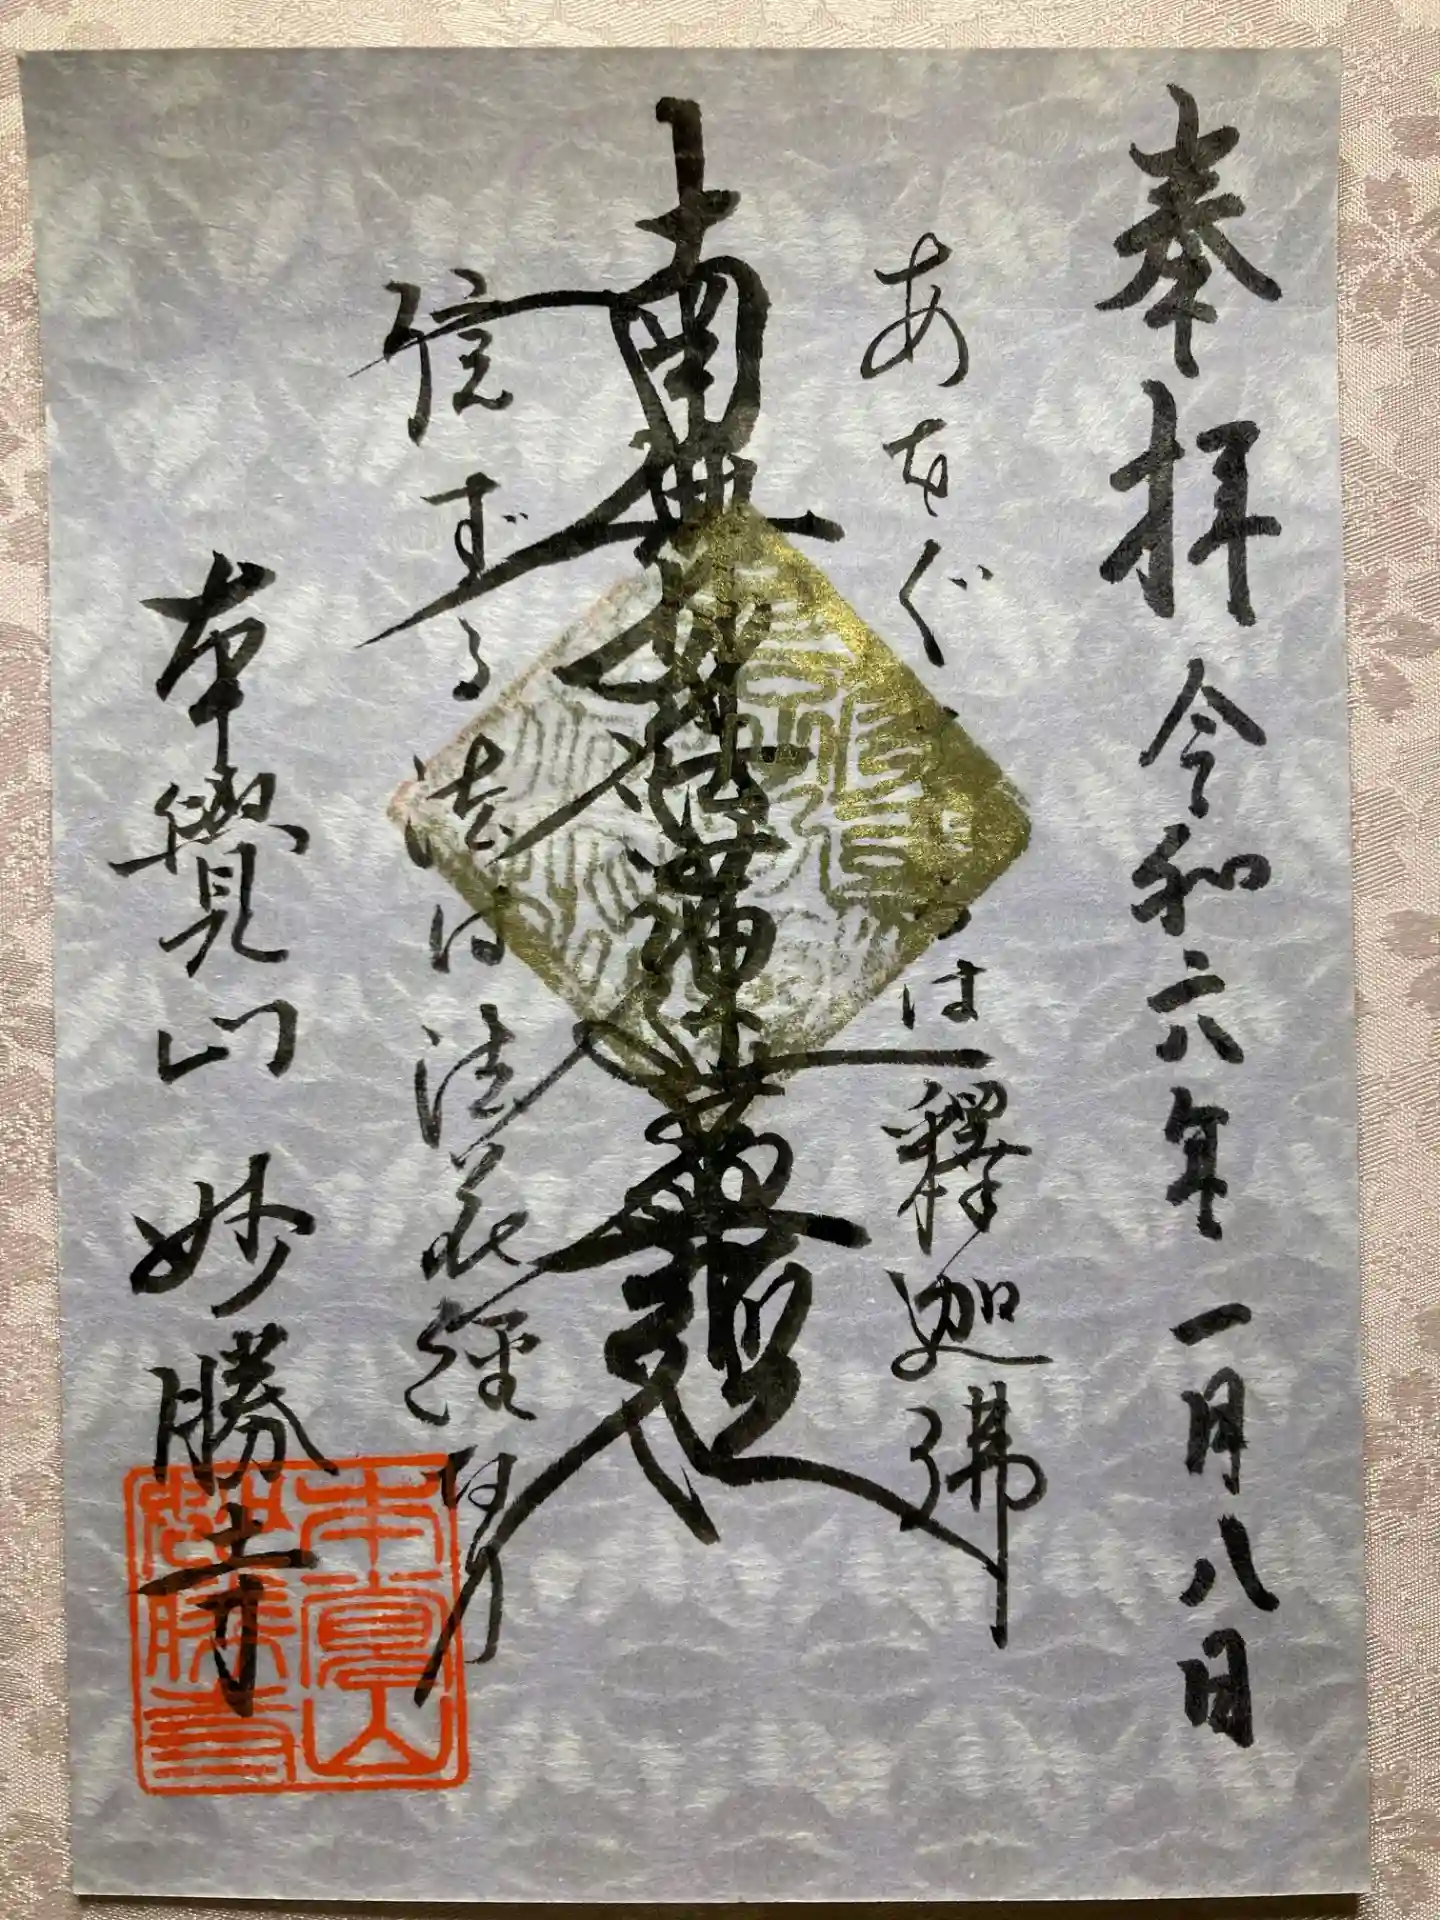 奉拝 令和六年一月八日
あをぐ は釋迦佛
南無妙法蓮華經
信ずる法は法花経なり
本覺山 妙勝寺
本覚山
妙勝寺